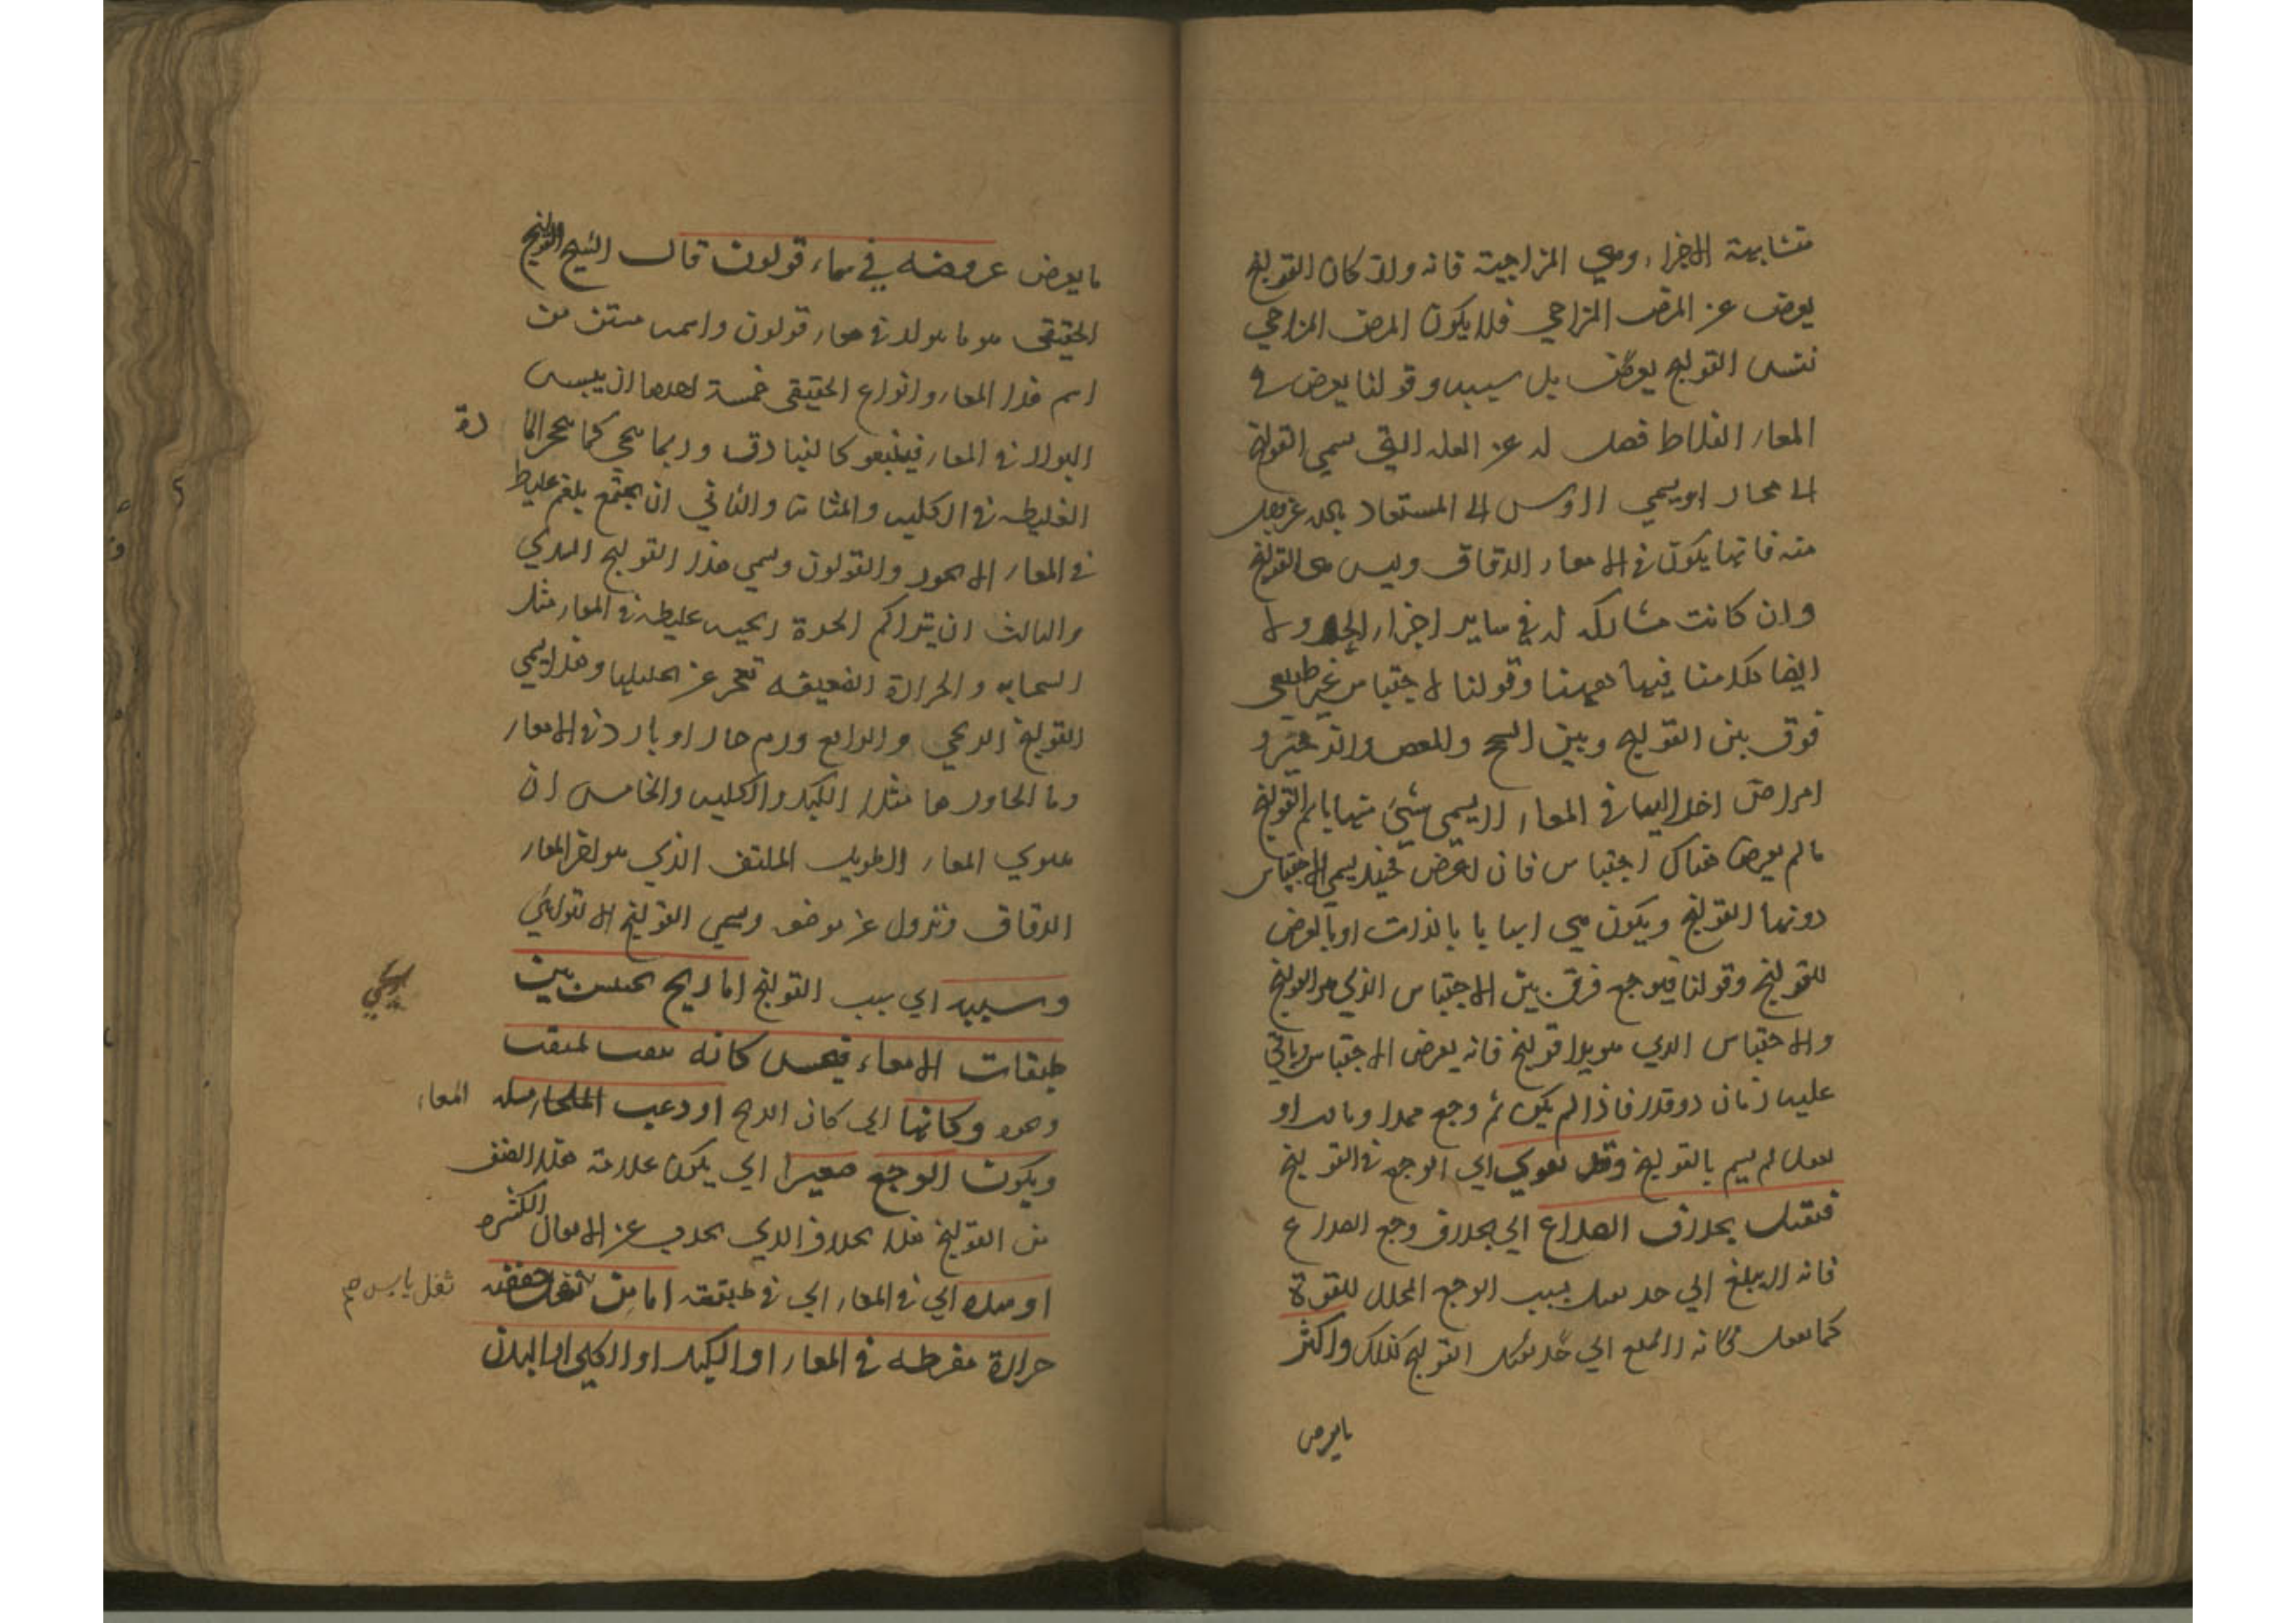 متشابهة الاجزاء وهي المزاجية فانه وان كان القولنج
يعرض عن المرض المزاجي فلا يكون المرض المزاجي
نفس القولنج بل سببه وقولنا يعرض في
المعاء الغلاظ فصل له عن العله التي تسمي القولنج
منه فانها يكون في الامعاء الدقاق وليس هي القولنج
وان كانت مشاركه له في ساير اجزاء الحد
ايضا كلامنا فيها ههنا وقولنا لاحتباس غير طبيعي
فرق بين القولنج وبين السحج والمغص والزحير و
امراض اخر ايضا في المعاء لا يسمي شيء منها باسم القولنج
ما لم يعرض هناك احتباس فان لعرض فحينئذ يسمي الاحتباس
دونها القولنج ويكون هي اسبابا بالذات او بالعرض
للقولنج وقولنا فيوجع فرق بين الاحتباس الذي هو القولنج
والاحتباس الذي هو بلا قولنج فانه يعرض الاحتباس وياتي
عليه زمان ذو قدر فاذا لم يكن ثم وجع
لم يسم بالقولنج وقد يقوي اي الوجع في القولنج
فيقتل بخلاف الصداع اي بخلاف وجع الصداع
فانه لا يبلغ الي حد يقتل بسبب الوجع المحلل للقوة
القولنج كذلك واكثر
ما يعرض
ما يعرض عروضه في معاء قولون قال الشيخ القولنج
الحقيقي هو ما يتولد في معاء قولون واسمه مشتق من
اسم هذا المعاء وانواع الحقيقي خمسة احدها ان ييبس
البراز في المعاء كالبنادق وربما تحجر كما تحجر الما
دة
الغليظه في الكليه والمثانه والثاني ان يجتمع بلغم غليظ
في المعاء الاعور والقولون ويسمي هذا القولنج
والثالث ان يتراكم ابخرة ريحيه غليظه في المعاء مثل
السحابه والحرارة الضعيفه تعجز عن تحليلها وهذا يسمي
القولنج الريحي والرابع ورم حار او بارد في الامعاء
وما الجاورها مثل الكبد والكليه والخامس ان
يلتوي المعاء الطويل الملتف الذي هو اخر المعاء
الدقاق وتزول عن موضعه ويسمي القولنج الالتوائي
وسببه اي سبب القولنج اما ريح تحتبس بين
ريحي
طبقات الامعاء فيحس كانه يثقب بمثقب
وكانها اي كان الريح اودعت
المعاء
ويكون الوجع صغيرا اي يكون علامة هذا الصنف
من القولنج هذا بخلاف الذي يحدث عن الاثفال الكثيره
او سده اي في المعاء اي في طبقته اما من ثفل يجففه
ثفل يابس صح
حرارة مفرطه في المعاء او الكبد او الكلي او البدن